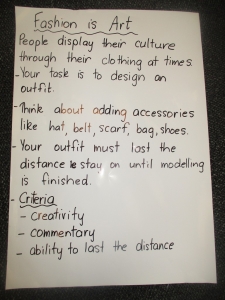 Fashion is Art
People display their culture
through their clothing at times.
-Your task is to design an
outfit.
-Think about adding accessories
like hat, belt, scarf, bag, shoes.
-Your outfit must last the
distance & stay on until modelling
is finished.
- Criteria
- creativity
- commentary
- ability to last the distance